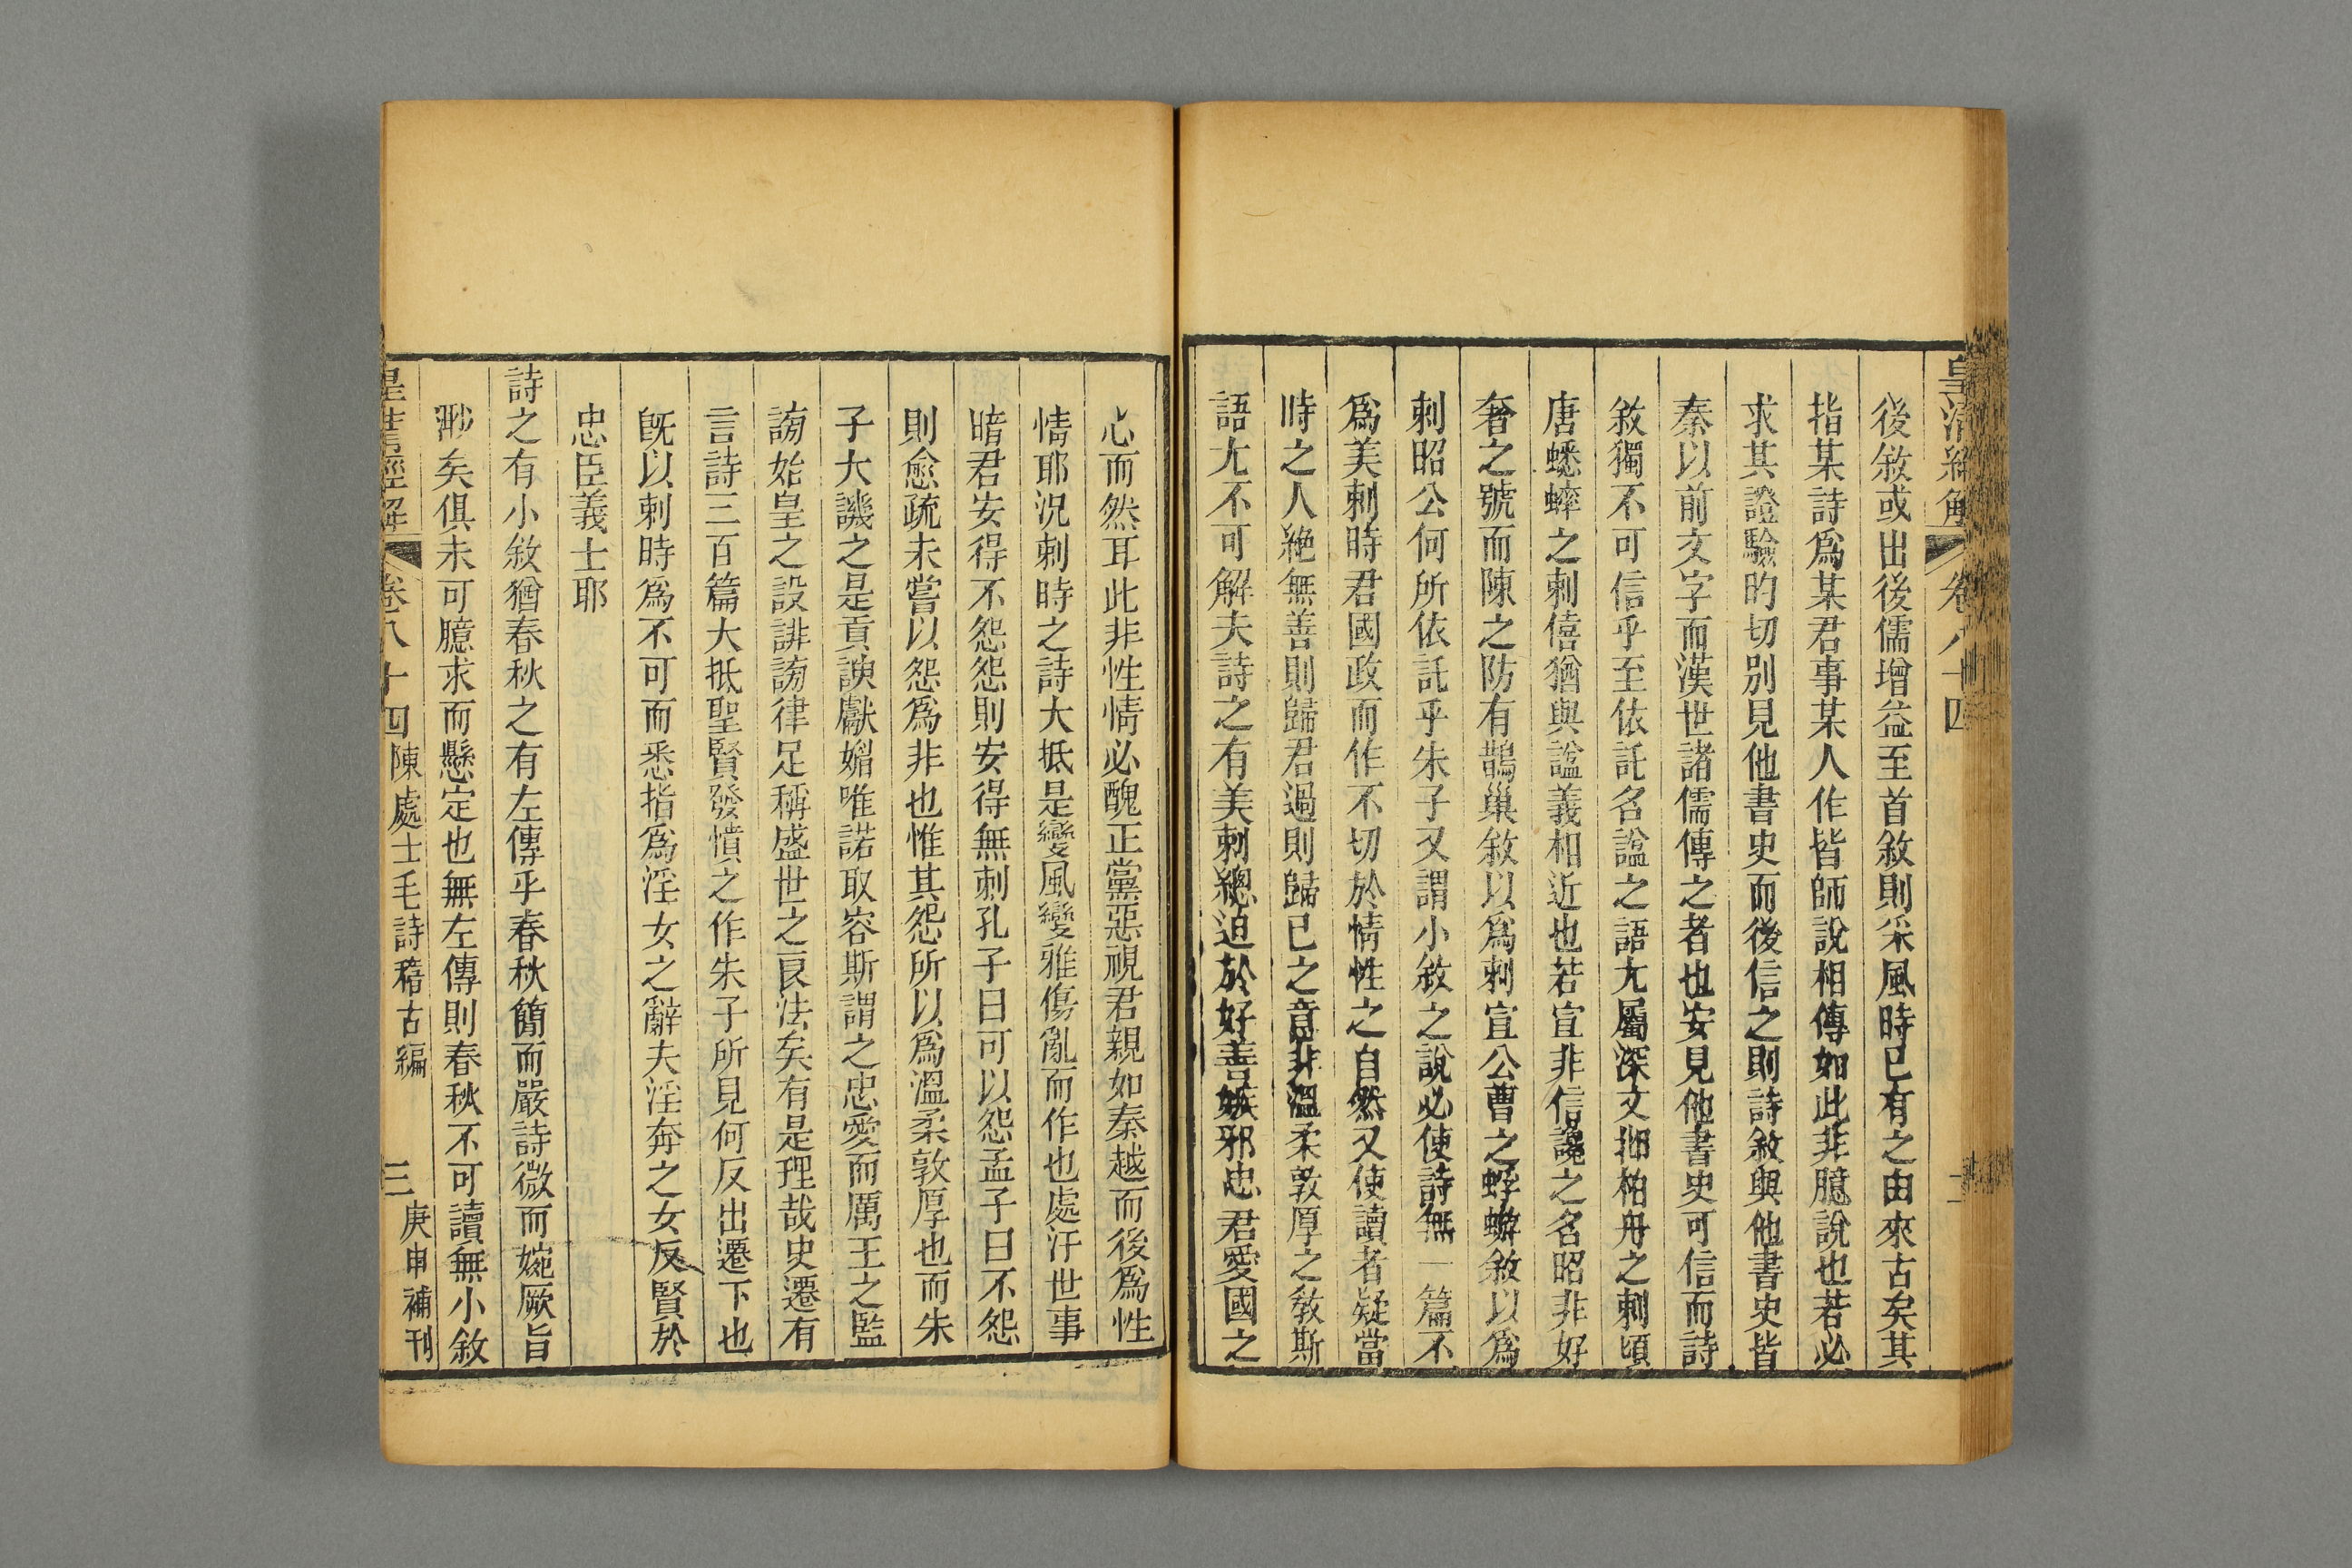 皇清經解 卷八十四 二
後敘或出後儒增益至首敘則采風時已有之由來古矣其
指某詩爲某君事某人作皆師說相傳如此非臆說也若必
求其證驗旳切別見他書史而後信之則詩敘與他書史皆
秦以前文字而漢世諸儒傳之者也安見他書史可信而詩
敘獨不可信乎至依託名諡之語尢屬深文揶柏舟之刺頃
唐蟋蟀之刺僖猶與諡義相近也若宣非信讒之名昭非好
奢之號而陳之防有鵲巢敘以爲刺宣公曹之蜉蝣敘以爲
刺昭公何所依託乎朱子又謂小敘之說必使詩無一篇不
爲美刺時君國政而作不切於情性之自然又使讀者疑當
時之人絶無善則歸君過則歸已之意非溫柔敦厚之敎斯
語尢不可解夫詩之有美刺總迫於好善嫉邪忠君愛國之
心而然耳此非性情必醜正黨惡視君親如秦越而後爲性
情耶況刺時之詩大抵是變風變雅傷亂而作也處汙世事
暗君安得不怨怨則安得無刺孔子曰可以怨孟子曰不怨
則愈疏未嘗以怨爲非也惟其怨所以爲溫柔敦厚也而朱
子大譏之是貢諛獻媚唯諾取容斯謂之忠愛而厲王之監
謗始皇之設誹謗律足稱盛世之良法矣有是理哉史遷有
言詩三百篇大抵聖賢發憤之作朱子所見何反出遷下也
旣以刺時爲不可而悉指爲淫女之辭夫淫奔之女反賢於
忠臣義士耶
詩之有小敘猶春秋之有左傳乎春秋簡而嚴詩微而婉厥旨
渺矣俱未可臆求而懸定也無左傳則春秋不可讀無小敘
皇淸經解 卷八十四 陳處士毛詩稽古編 三 庚申補刊